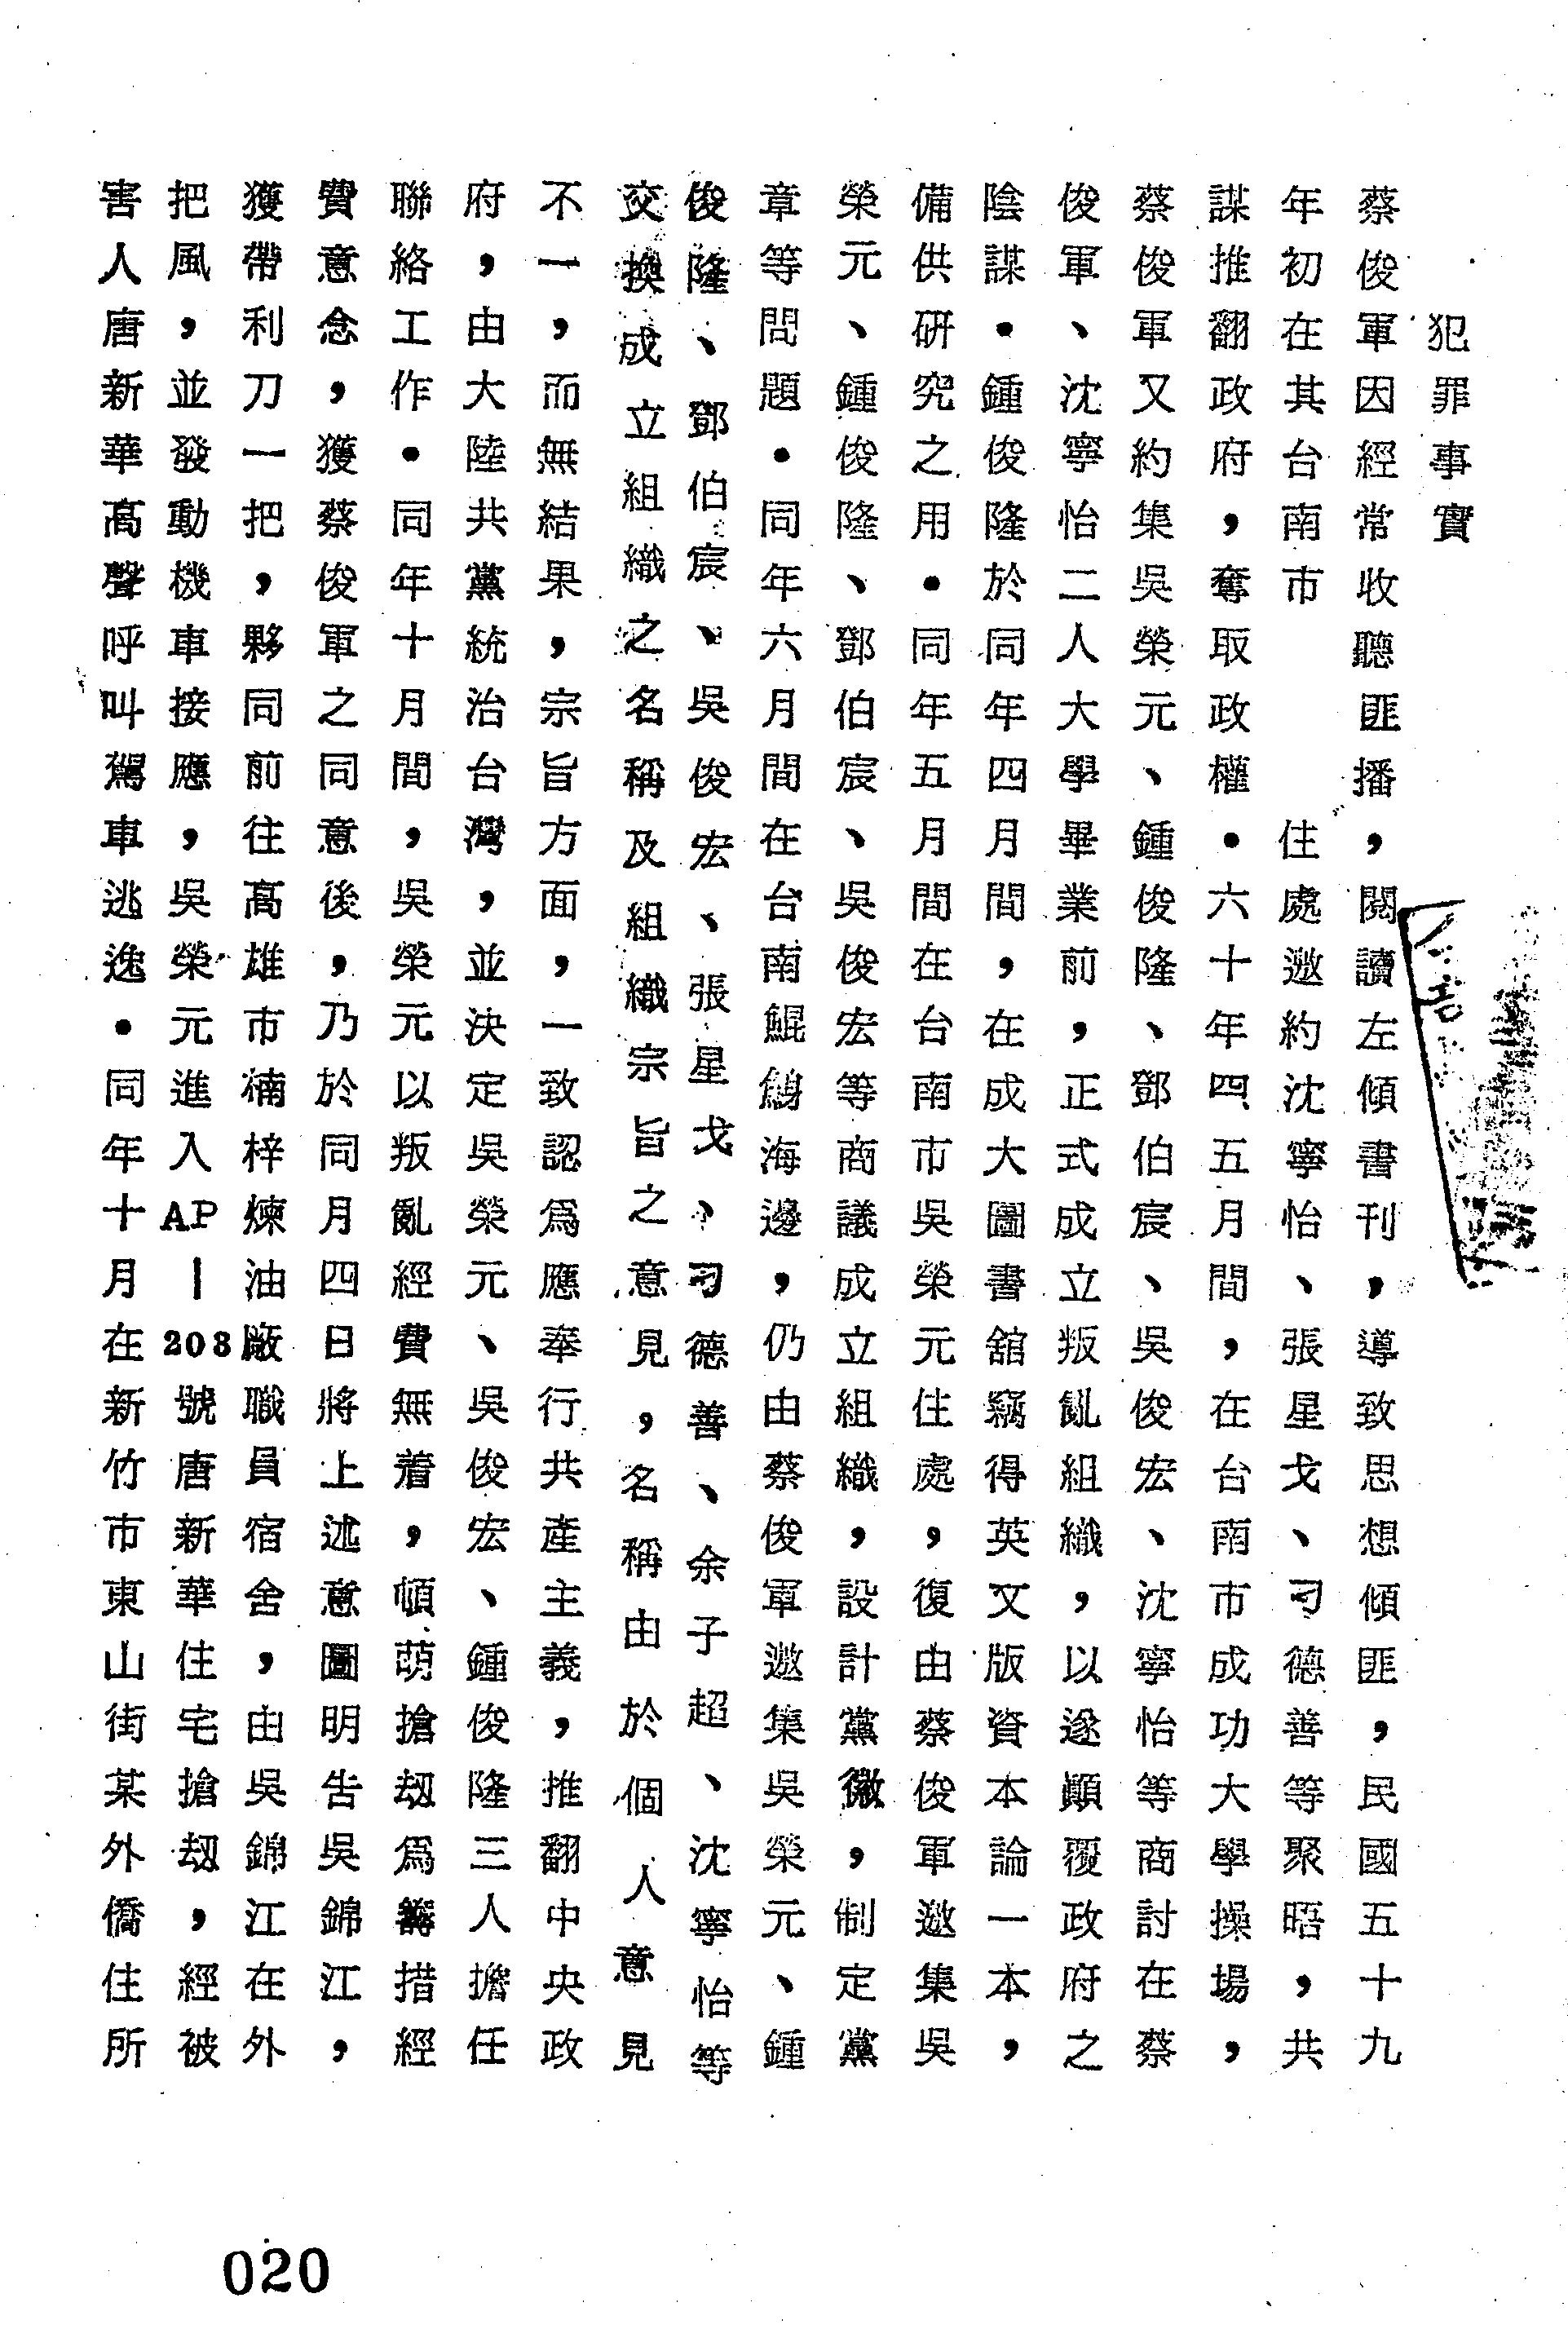 犯罪事實
蔡俊軍因經常收聽匪播,閱讀左傾書刊,導致思想傾匪,民國五十九
年初在其台南市　　　住處邀約沈寧怡、張星戈、刁德善等聚晤,共
謀推翻政府,奪取政權.六十年四、五月間,在台南市成功大學操場,
蔡俊軍又約集吳榮元、鍾俊隆、鄧伯宸、吳俊宏、沈寧怡等商討在蔡
俊軍、沈寧怡二人大學畢業前,正式成立叛亂組織,以遂顚覆政府之
陰謀.鍾俊隆於同年四月間,在成大圖書舘竊得英文版資本論一本,
備供研究之用.同年五月間在台南市吳榮元住處,復由蔡俊軍邀集吳
榮元、鍾俊隆、鄧伯宸、吳俊宏等商議成立組織,設計黨徽,制定黨
章等問題.同年六月間在台南鯤鯓海邊,仍由蔡俊軍邀集吳榮元、鍾
俊隆、鄧伯宸、吳俊宏、張星戈、刁德善、余子超、沈寧怡等
交換成立組織之名稱及組織宗旨之意見,名稱由於個人意見
不一,而無結果,宗旨方面,一致認爲應奉行共產主義,推翻中央政
府,由大陸共黨統治台灣,並決定吳榮元、吳俊宏、鍾俊隆三人擔任
聯絡工作.同年十月間,吳榮元以叛亂經費無着,頓萌搶刼爲籌措經
費意念,獲蔡俊軍之同意後,乃於同月四日將上述意圖明告吳錦江,
獲帶利刀一把,夥同前往高雄市楠梓煉油廠職員宿舍,由吳錦江在外
把風,並發動機車接應,吳榮元進入AP—203號唐新華住宅搶刼,經被
害人唐新華高聲呼叫駕車逃逸.同年十月在新竹市東山街某外僑住所
020